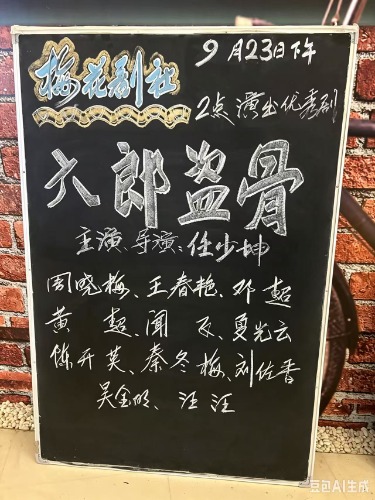 梅花剧社
9月23日下午
2点演出优秀剧
六郎盗骨
主演、导演:任少坤
周晓梅、王春艳、邓超
黄超、闻飞、夏光云
陈开英、秦冬梅、刘佐香
吴金明、汪汪
豆包AI生成